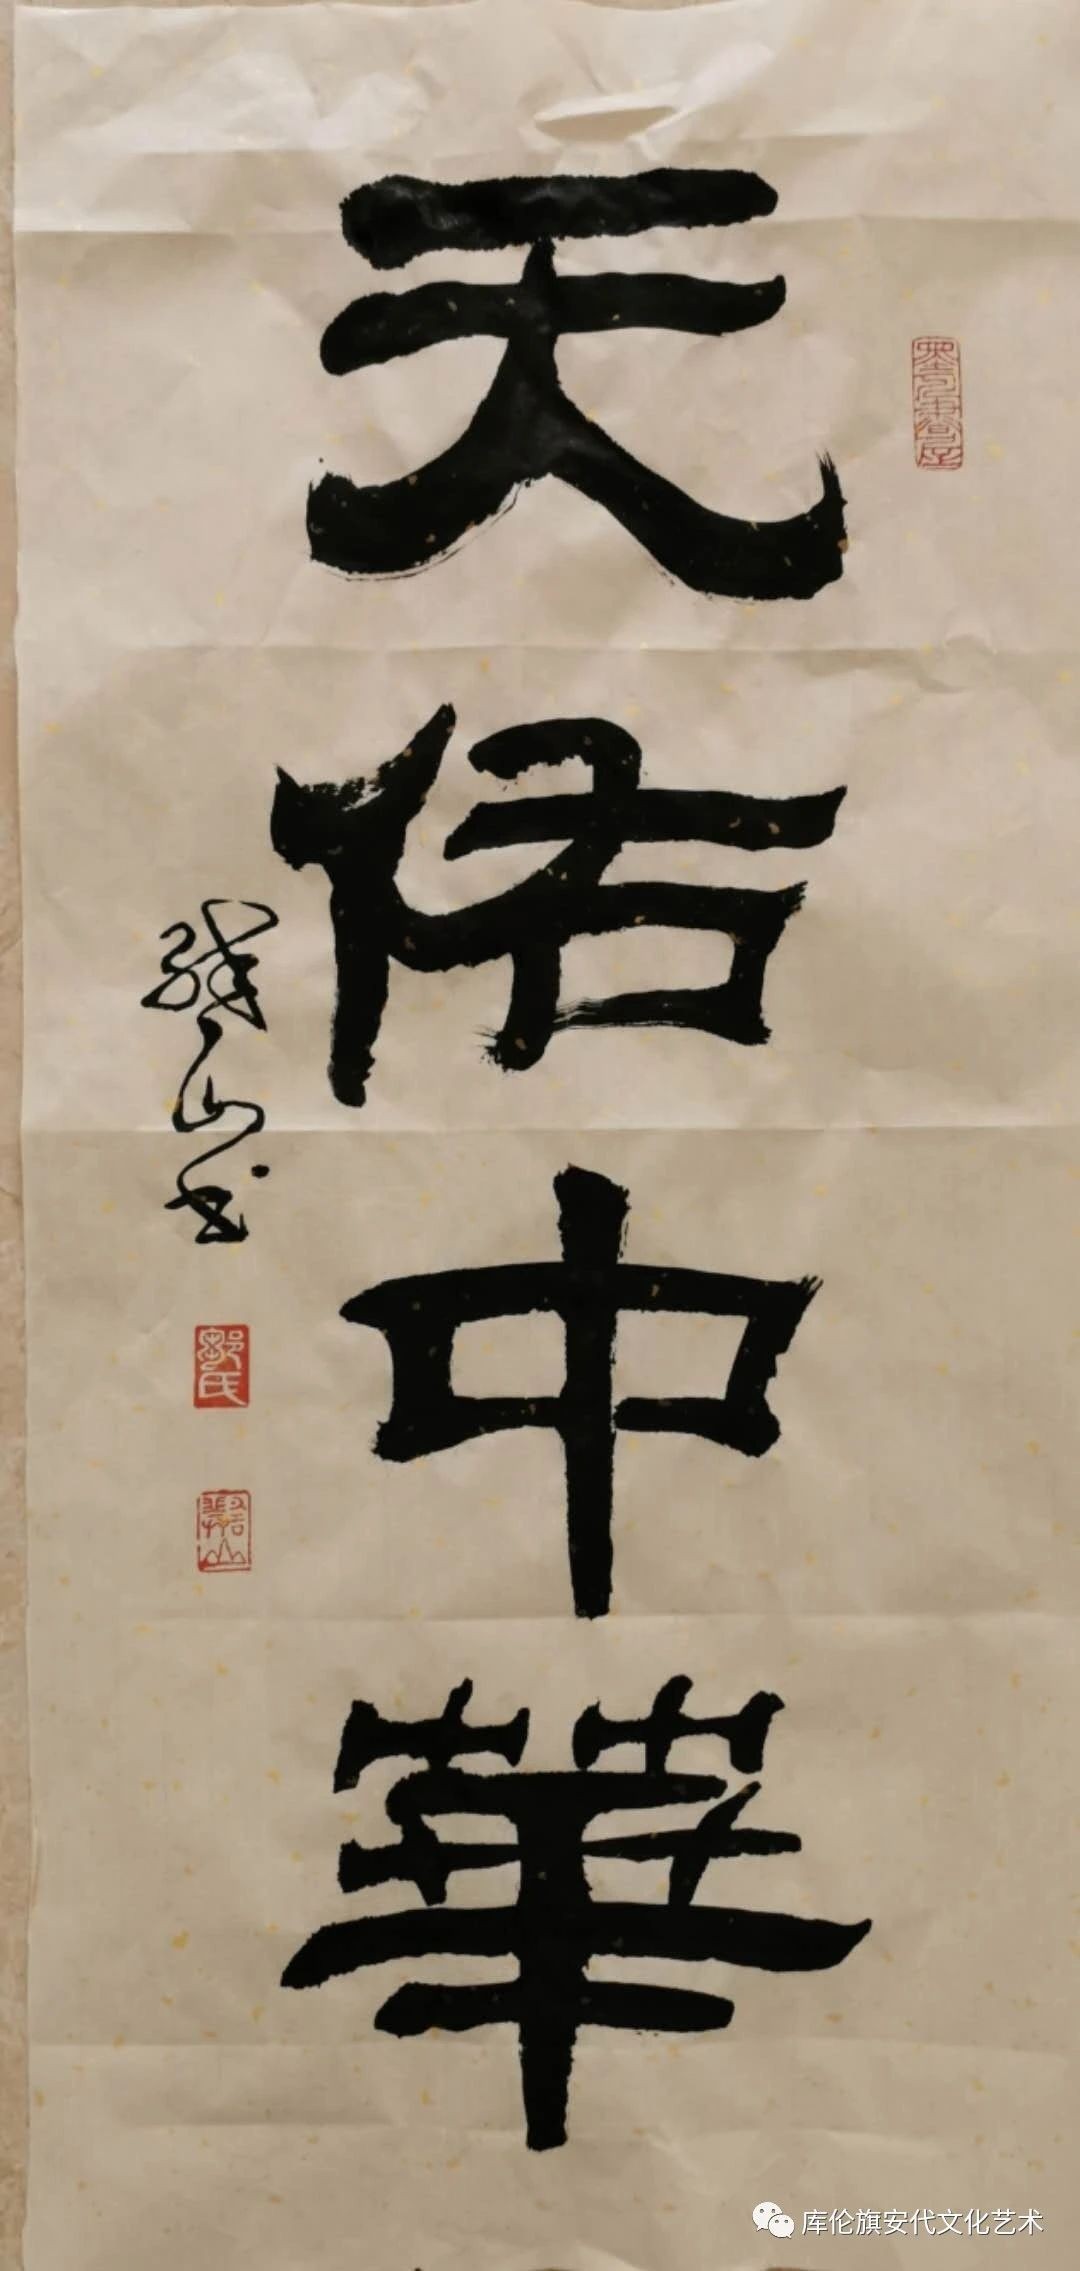 天佑中華
山书
氏
山
库伦旗安代文化艺术